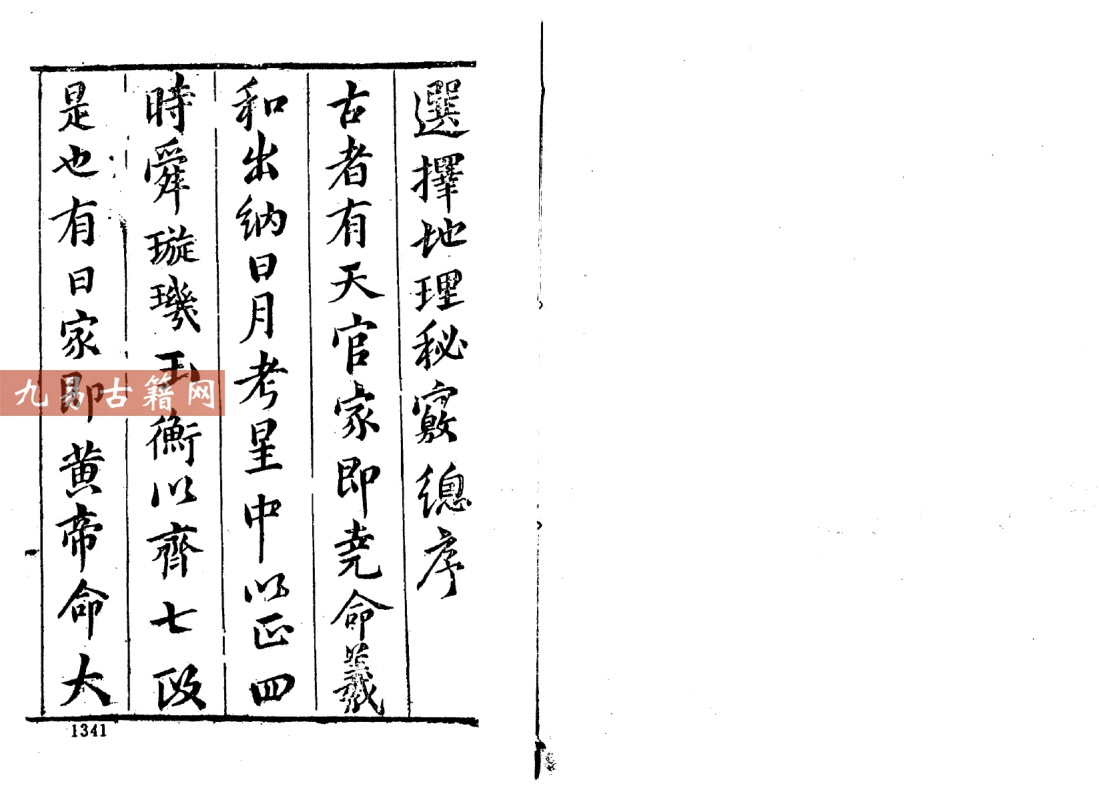 選擇地理秘竅總序
古者有天官家即堯命羲
和出納日月考星中以正四
時舜璇璣玉衡以齊七政
是也有日家即黃帝命大
九易古籍网
1341